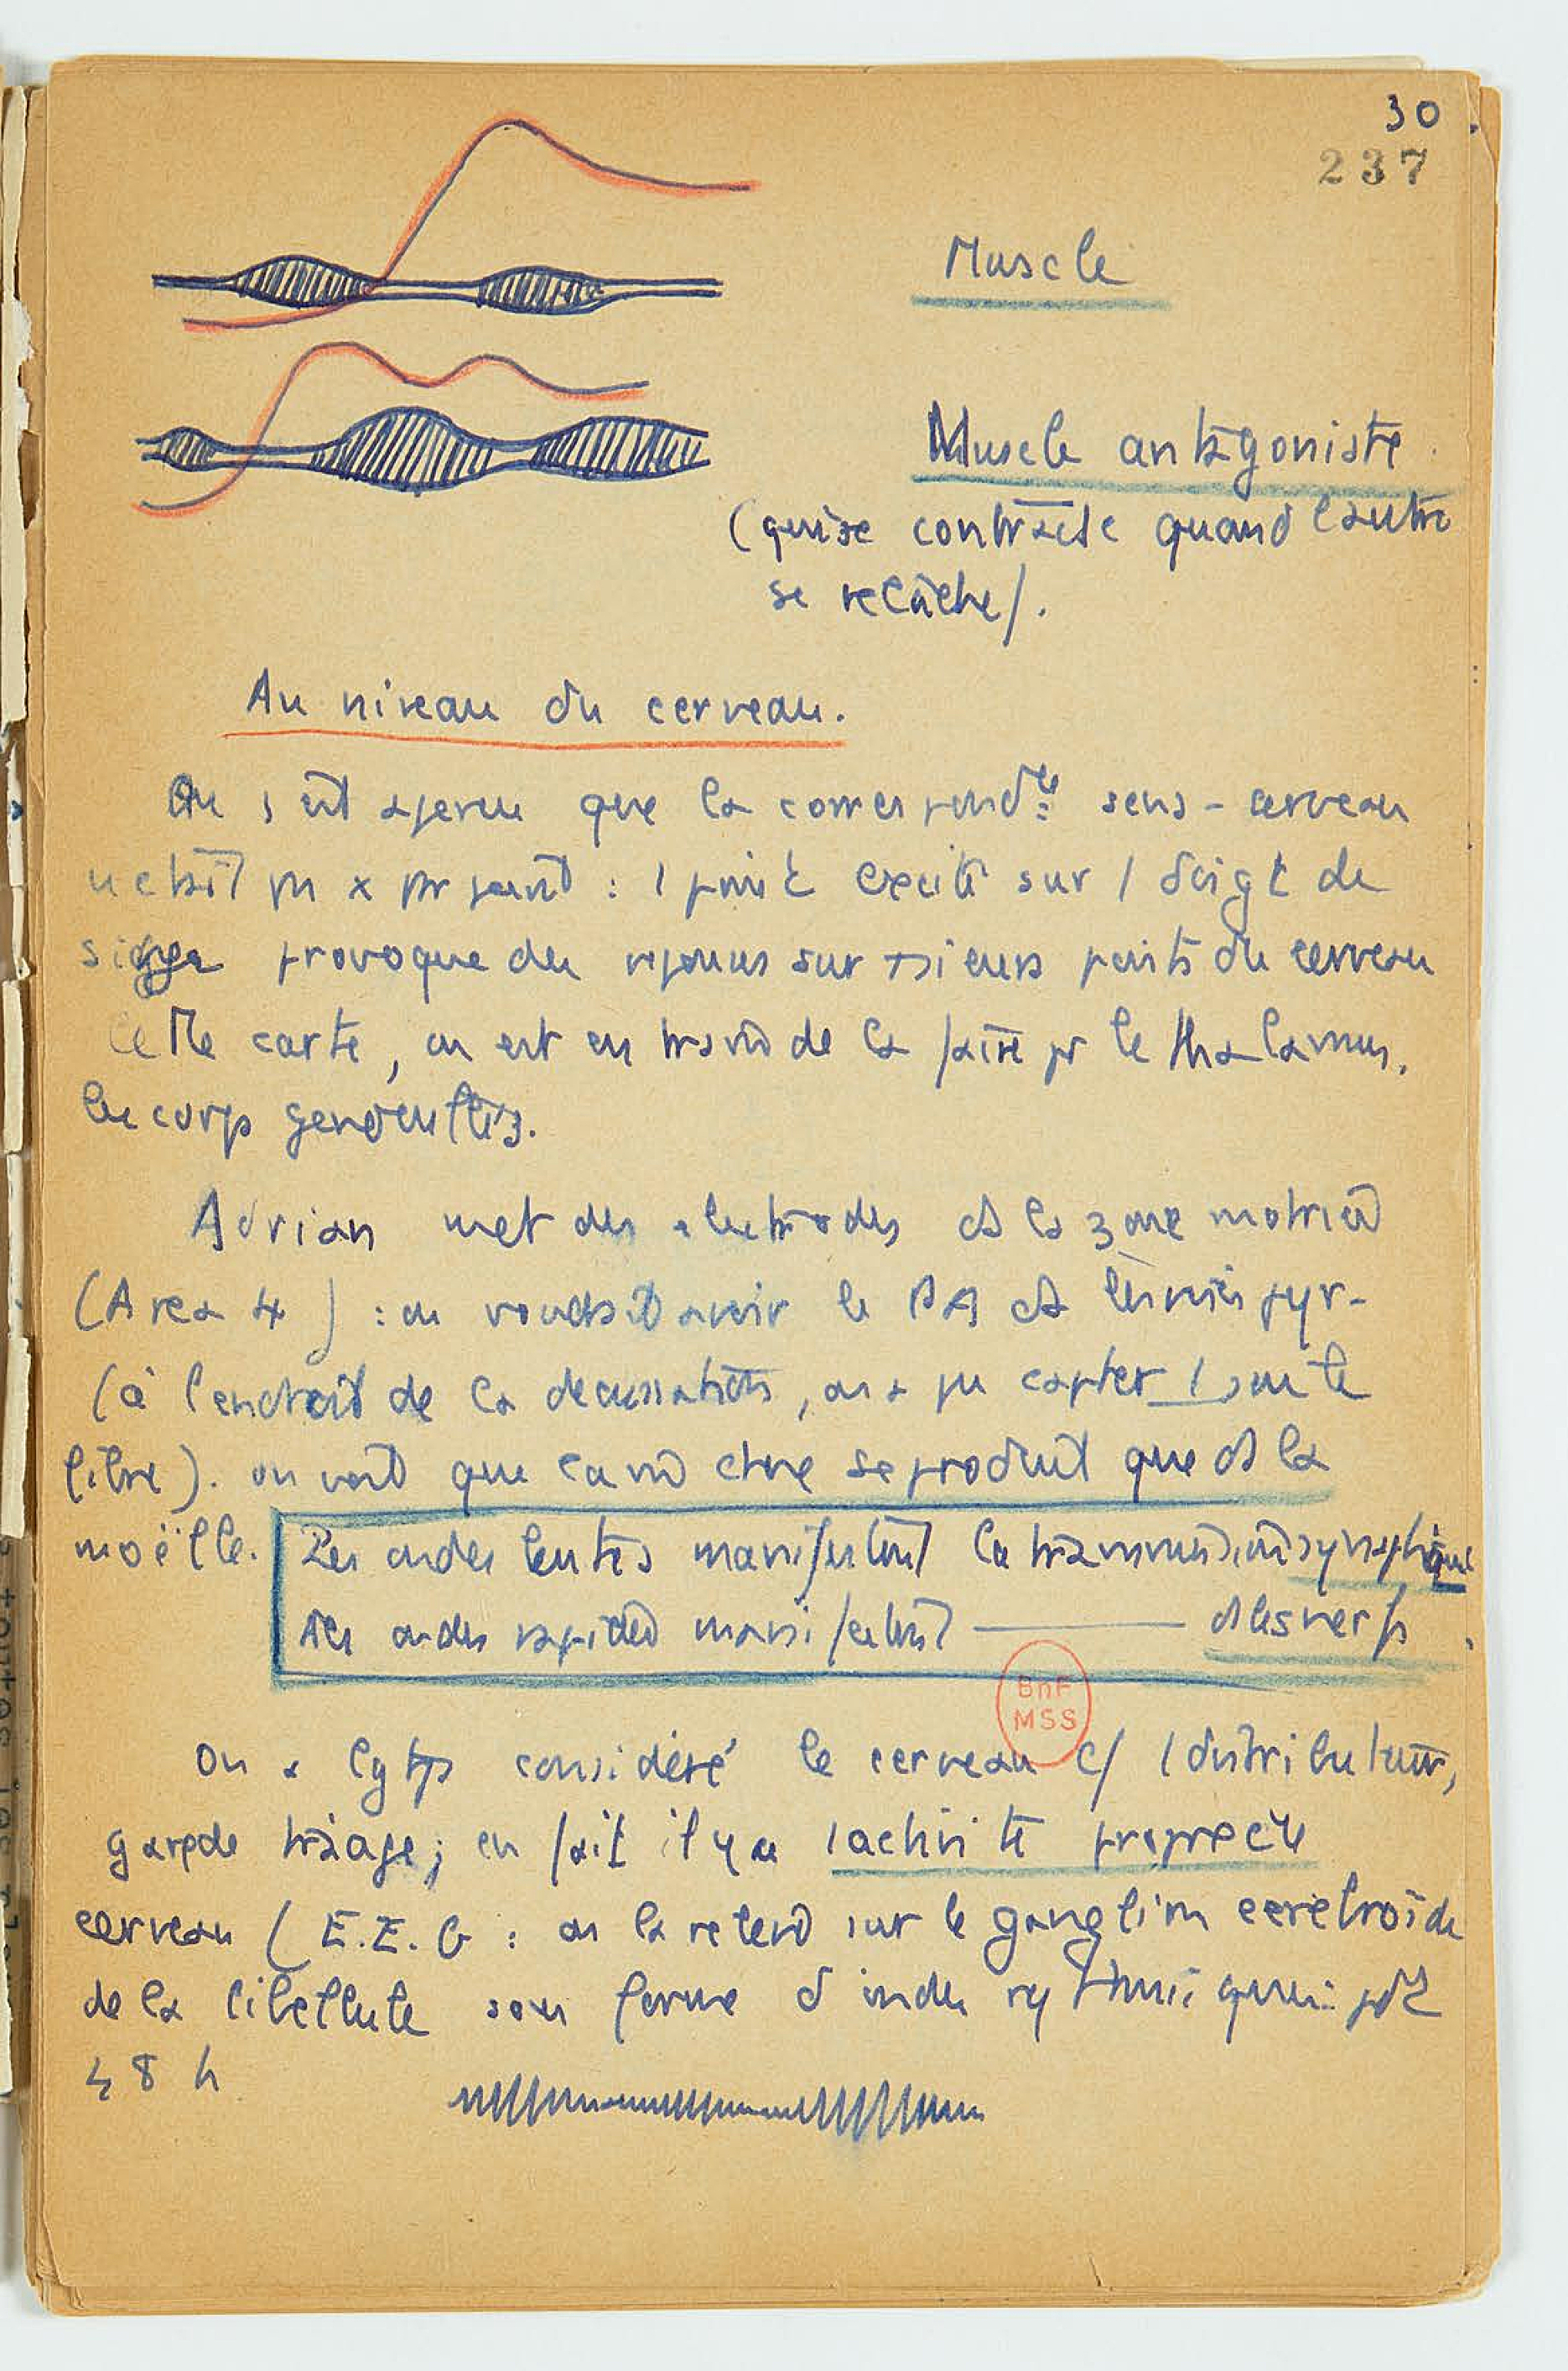 30.
237
Muscle
Muscle antagoniste.
(qui se contracte quand l'autre
se relâche).
Au niveau du cerveau.
On s'est aperçu que la correspondce sens - cerveau
pt par pt : 1 point excité sur 1 doigt de
singe provoque des réponses sur +sieurs points du cerveau
Cette carte, on est en train de la faire pr le thalamus,
les corps genouillés.
Adrian met des électrodes ds la zone motrice
(Area 4) : on voudrait avoir le PA ds
(à l'endroit de la décussation, on a pu capter 1 seule
fibre). on voit que chose se produit que ds la
moëlle. Les ondes lentes manifestent la transmission synaptique
Les ondes rapides manifestent ——— ds les nerfs.
BnF
MSS
On a lgtps considéré le cerveau c/ 1 distributeur,
gare de triage; en fait il y a 1 activité propre du
cerveau (E.E.G : on la retend sur le ganglion cérébroïde
de la libellule sous forme d'ondes rythmiques pdt
48 h